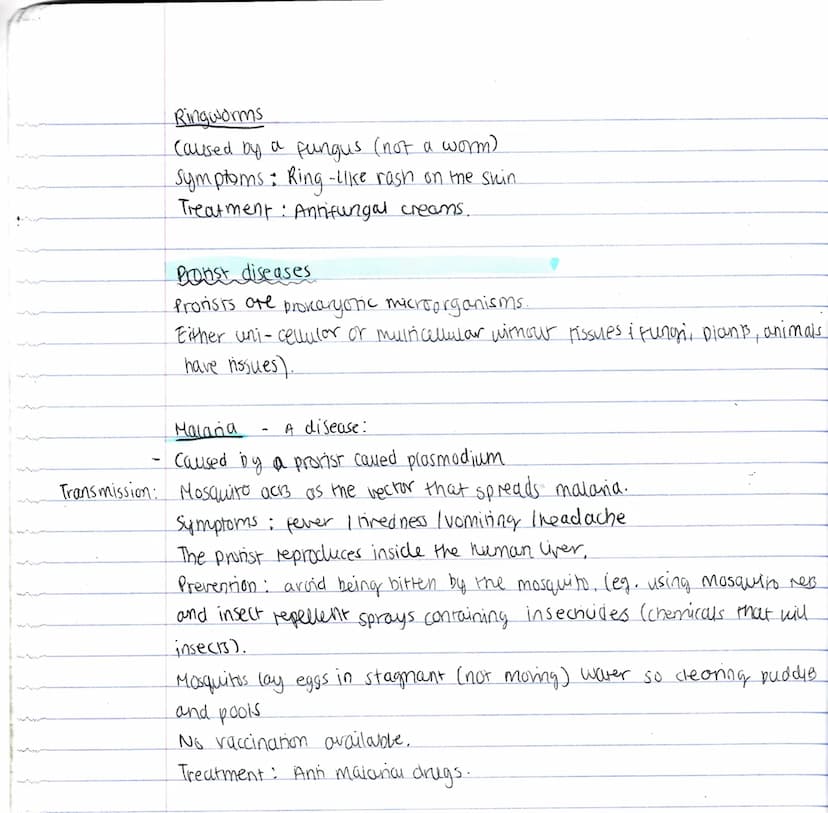 Ringworms
Caused by a fungus (not a worm)
Symptoms : Ring-like rash on the skin
Treatment : Antifungal creams.
Protist diseases
Protists are prokaryotic microorganisms.
Either uni-cellular or multicellular without tissues (fungi, plants, animals
have tissues).
Malaria - A disease:
- Caused by a protist called plasmodium
Transmission: Mosquito acts as the vector that spreads malaria.
Symptoms : fever / tiredness / vomiting / headache
The protist reproduces inside the human liver.
Prevention : avoid being bitten by the mosquito. (eg. using mosquito nets
and insect repellent sprays containing insecticides (chemicals that kill
insects).
Mosquitos lay eggs in stagnant (not moving) water so clearing puddles
and pools
No vaccination available.
Treatment : Anti malarial drugs.